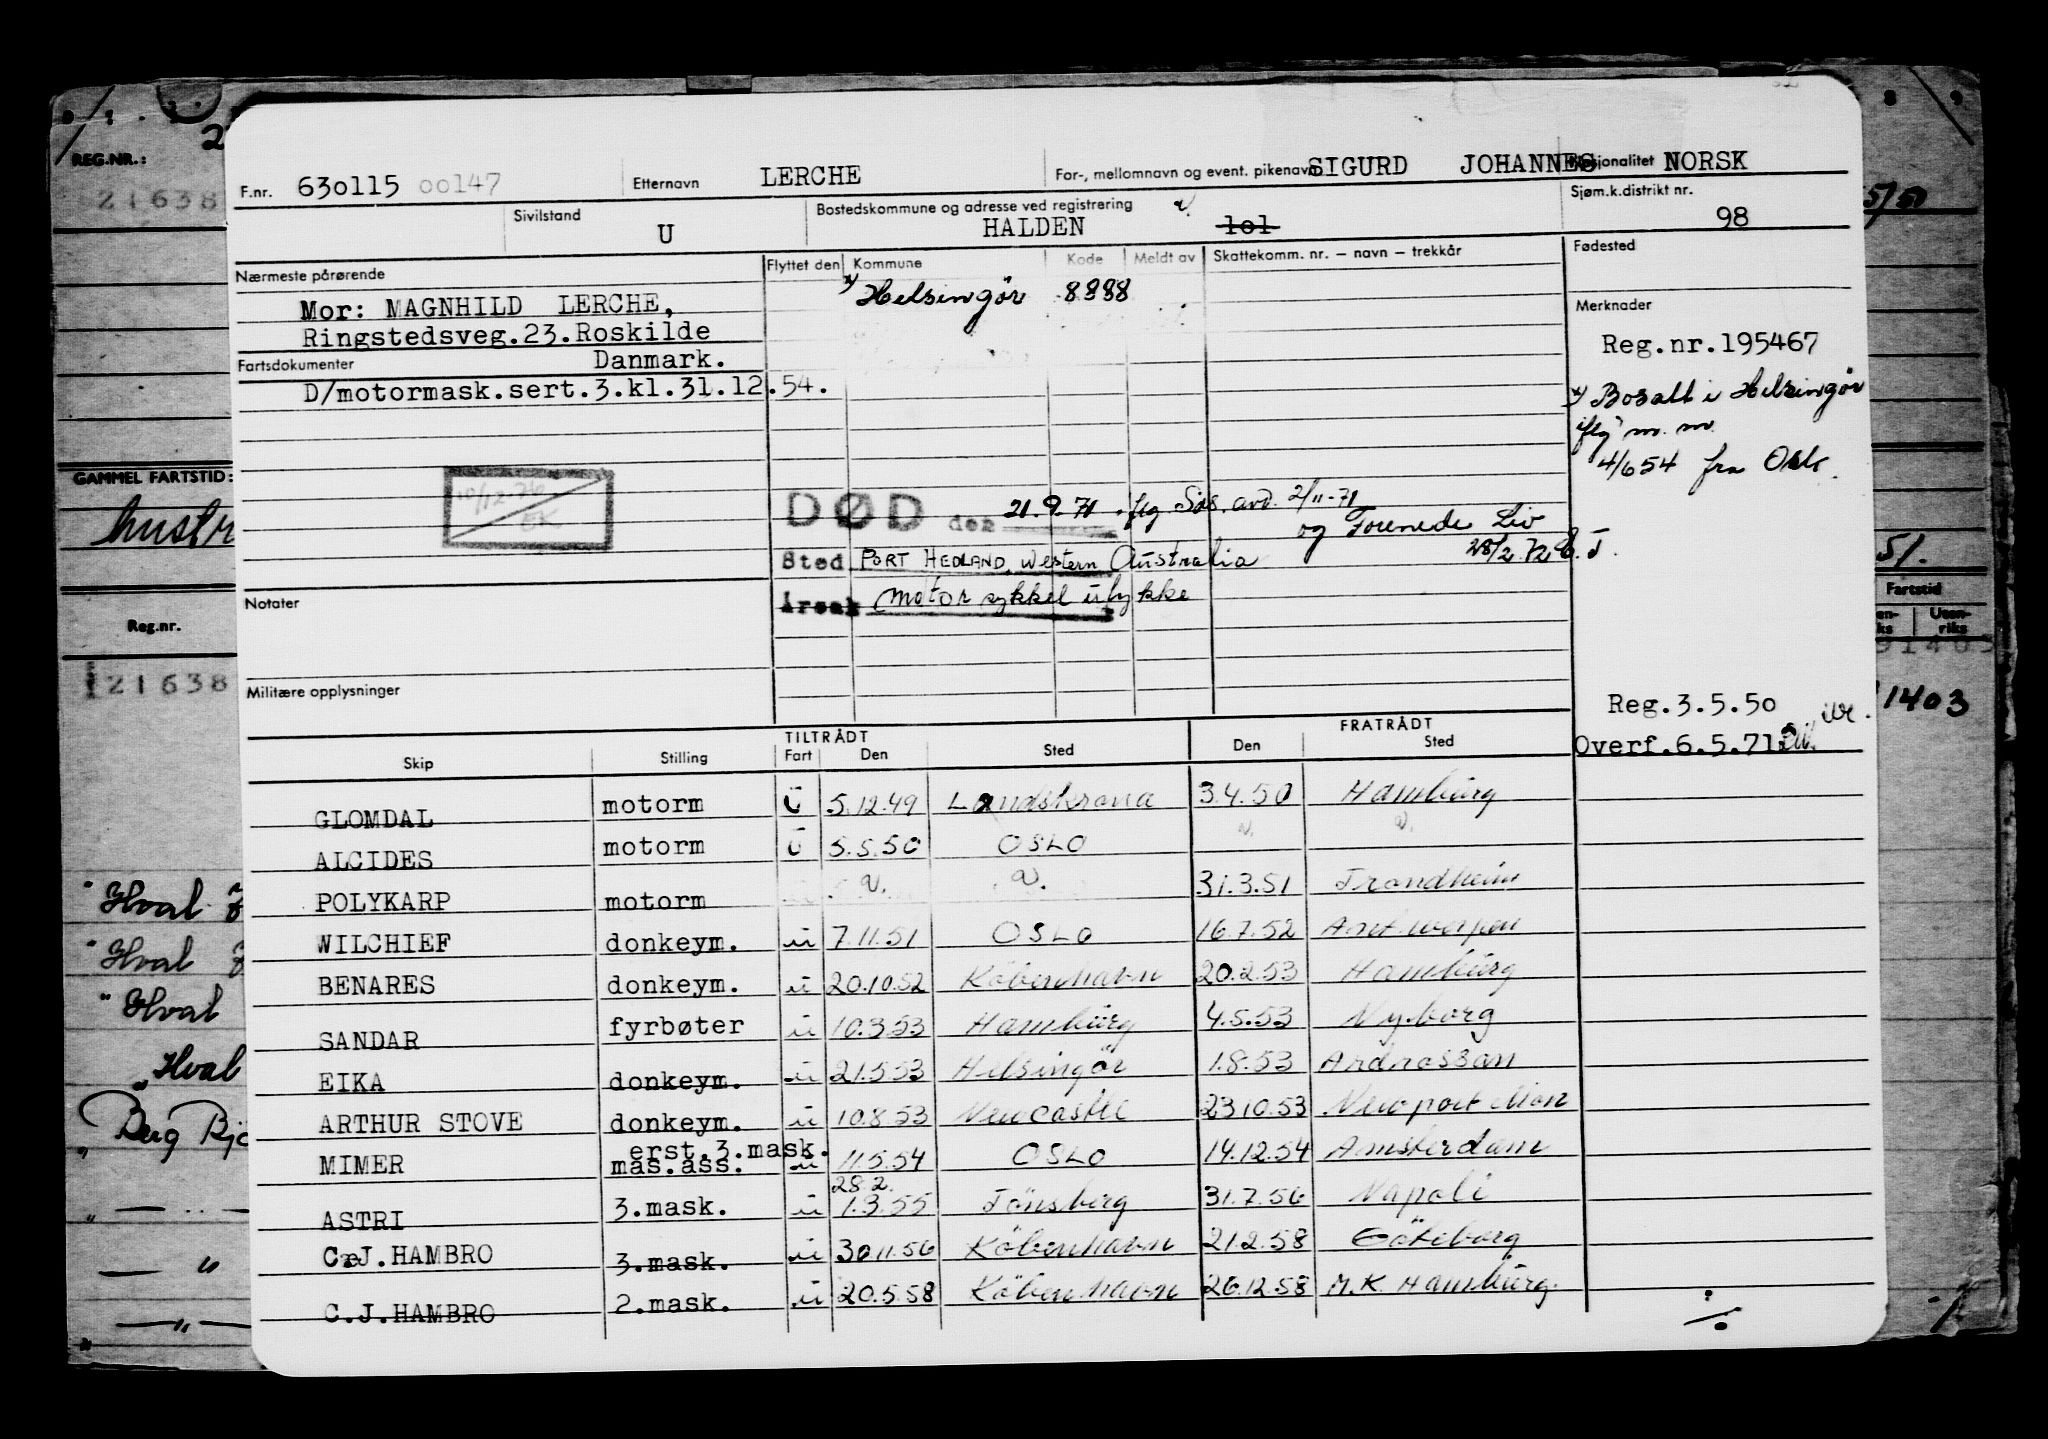 F.nr. 630115 00147 Etternavn LERCHE For-, mellomnavn og event. pikenavn SIGURD JOHANNES Nasjonalitet NORSK
Sivilstand U Bostedskommune og adresse ved registrering HALDEN 101 Sjøm.k.distrikt nr. 98
Nærmeste pårørende Flyttet den Kommune Kode Meldt av Skattekomm. nr. – navn – trekkår Fødested
Mor: MAGNHILD LERCHE, Helsingör 8888 Merknader
Ringstedsveg.23.Roskilde Reg.nr.195467
Fartsdokumenter Danmark.
D/motormask.sert.3.kl.31.12.54. Bosatt i Helsingör
iflg m.m.
4/6 54 fra Oslo.
10/12-76
EK
DØD den 21.9.71 iflg Sos. avd. 2/11-71
og Forenede Liv
28/2.72
Sted PORT HEDLAND, Western Australia
Årsak Motor sykkel ulykke
Notater
Militære opplysninger
Reg.3.5.50
Overf.6.5.71
TILTRÅDT FRATRÅDT
Skip Stilling Fart Den Sted Den Sted
GLOMDAL motorm U 5.12.49 Landskrona 3.4.50 Hamburg
ALCIDES motorm U 5.5.50 OSLO
POLYKARP motorm 31.3.51 Trondheim
WILCHIEF donkeym. u 7.11.51 OSLO 16.7.52 Antwerpen
BENARES donkeym. u 20.10.52 Köbenhavn 20.2.53 Hamburg
SANDAR fyrbøter u 10.3.53 Hamburg 4.5.53 Nyborg
EIKA donkeym. u 21.5.53 Helsingör 1.8.53 Ardrossan
ARTHUR STOVE donkeym. u 10.8.53 Newcastle 23.10.53 Newport Mon
erst.3.mask.
MIMER mas.ass. u 11.5.54 OSLO 14.12.54 Amsterdam
28.2.
ASTRI 3.mask. u 1.3.55 Tönsberg 31.7.56 Napoli
C.J.HAMBRO 3.mask. u 30.11.56 Köbenhavn 21.2.58 Göteborg
C.J.HAMBRO 2.mask. u 20.5.58 Köbenhavn 26.12.58 M.K. Hamburg.
REG.NR.:
21638
GAMMEL FARTSTID:
hustr
Reg.nr.
121638
"Hval
"Hval
"Hval
"Hval
Berg
5/50
51.
Fartstid
Uten-
riks
1403